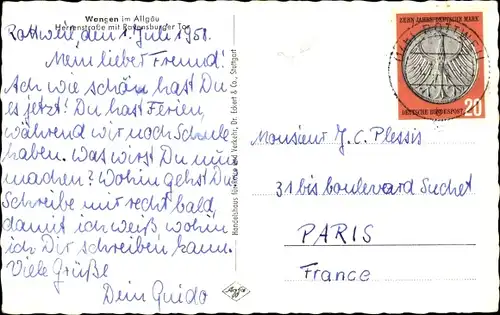 Wangen im Allgäu
Herrenstraße mit Ravensburger Tor
Rottweil den 1. Juli 1958.
Mein lieber Freund!
Ach wie schön hast Du
es jetzt! Du hast Ferien,
während wir noch Schule
haben. Was wirst Du nun
machen? Wohin gehst Du
Schreibe mir recht bald,
damit ich weiß wohin
ich Dir schreiben kann.
Viele Grüße
Dein Guido
Stuttgart
ZEHN JAHRE DEUTSCHE MARK
DEUTSCHE BUNDESPOST
20
ROTTWEIL
Monsieur J. C. Plessis
31 bis boulevard Suchet
PARIS
France